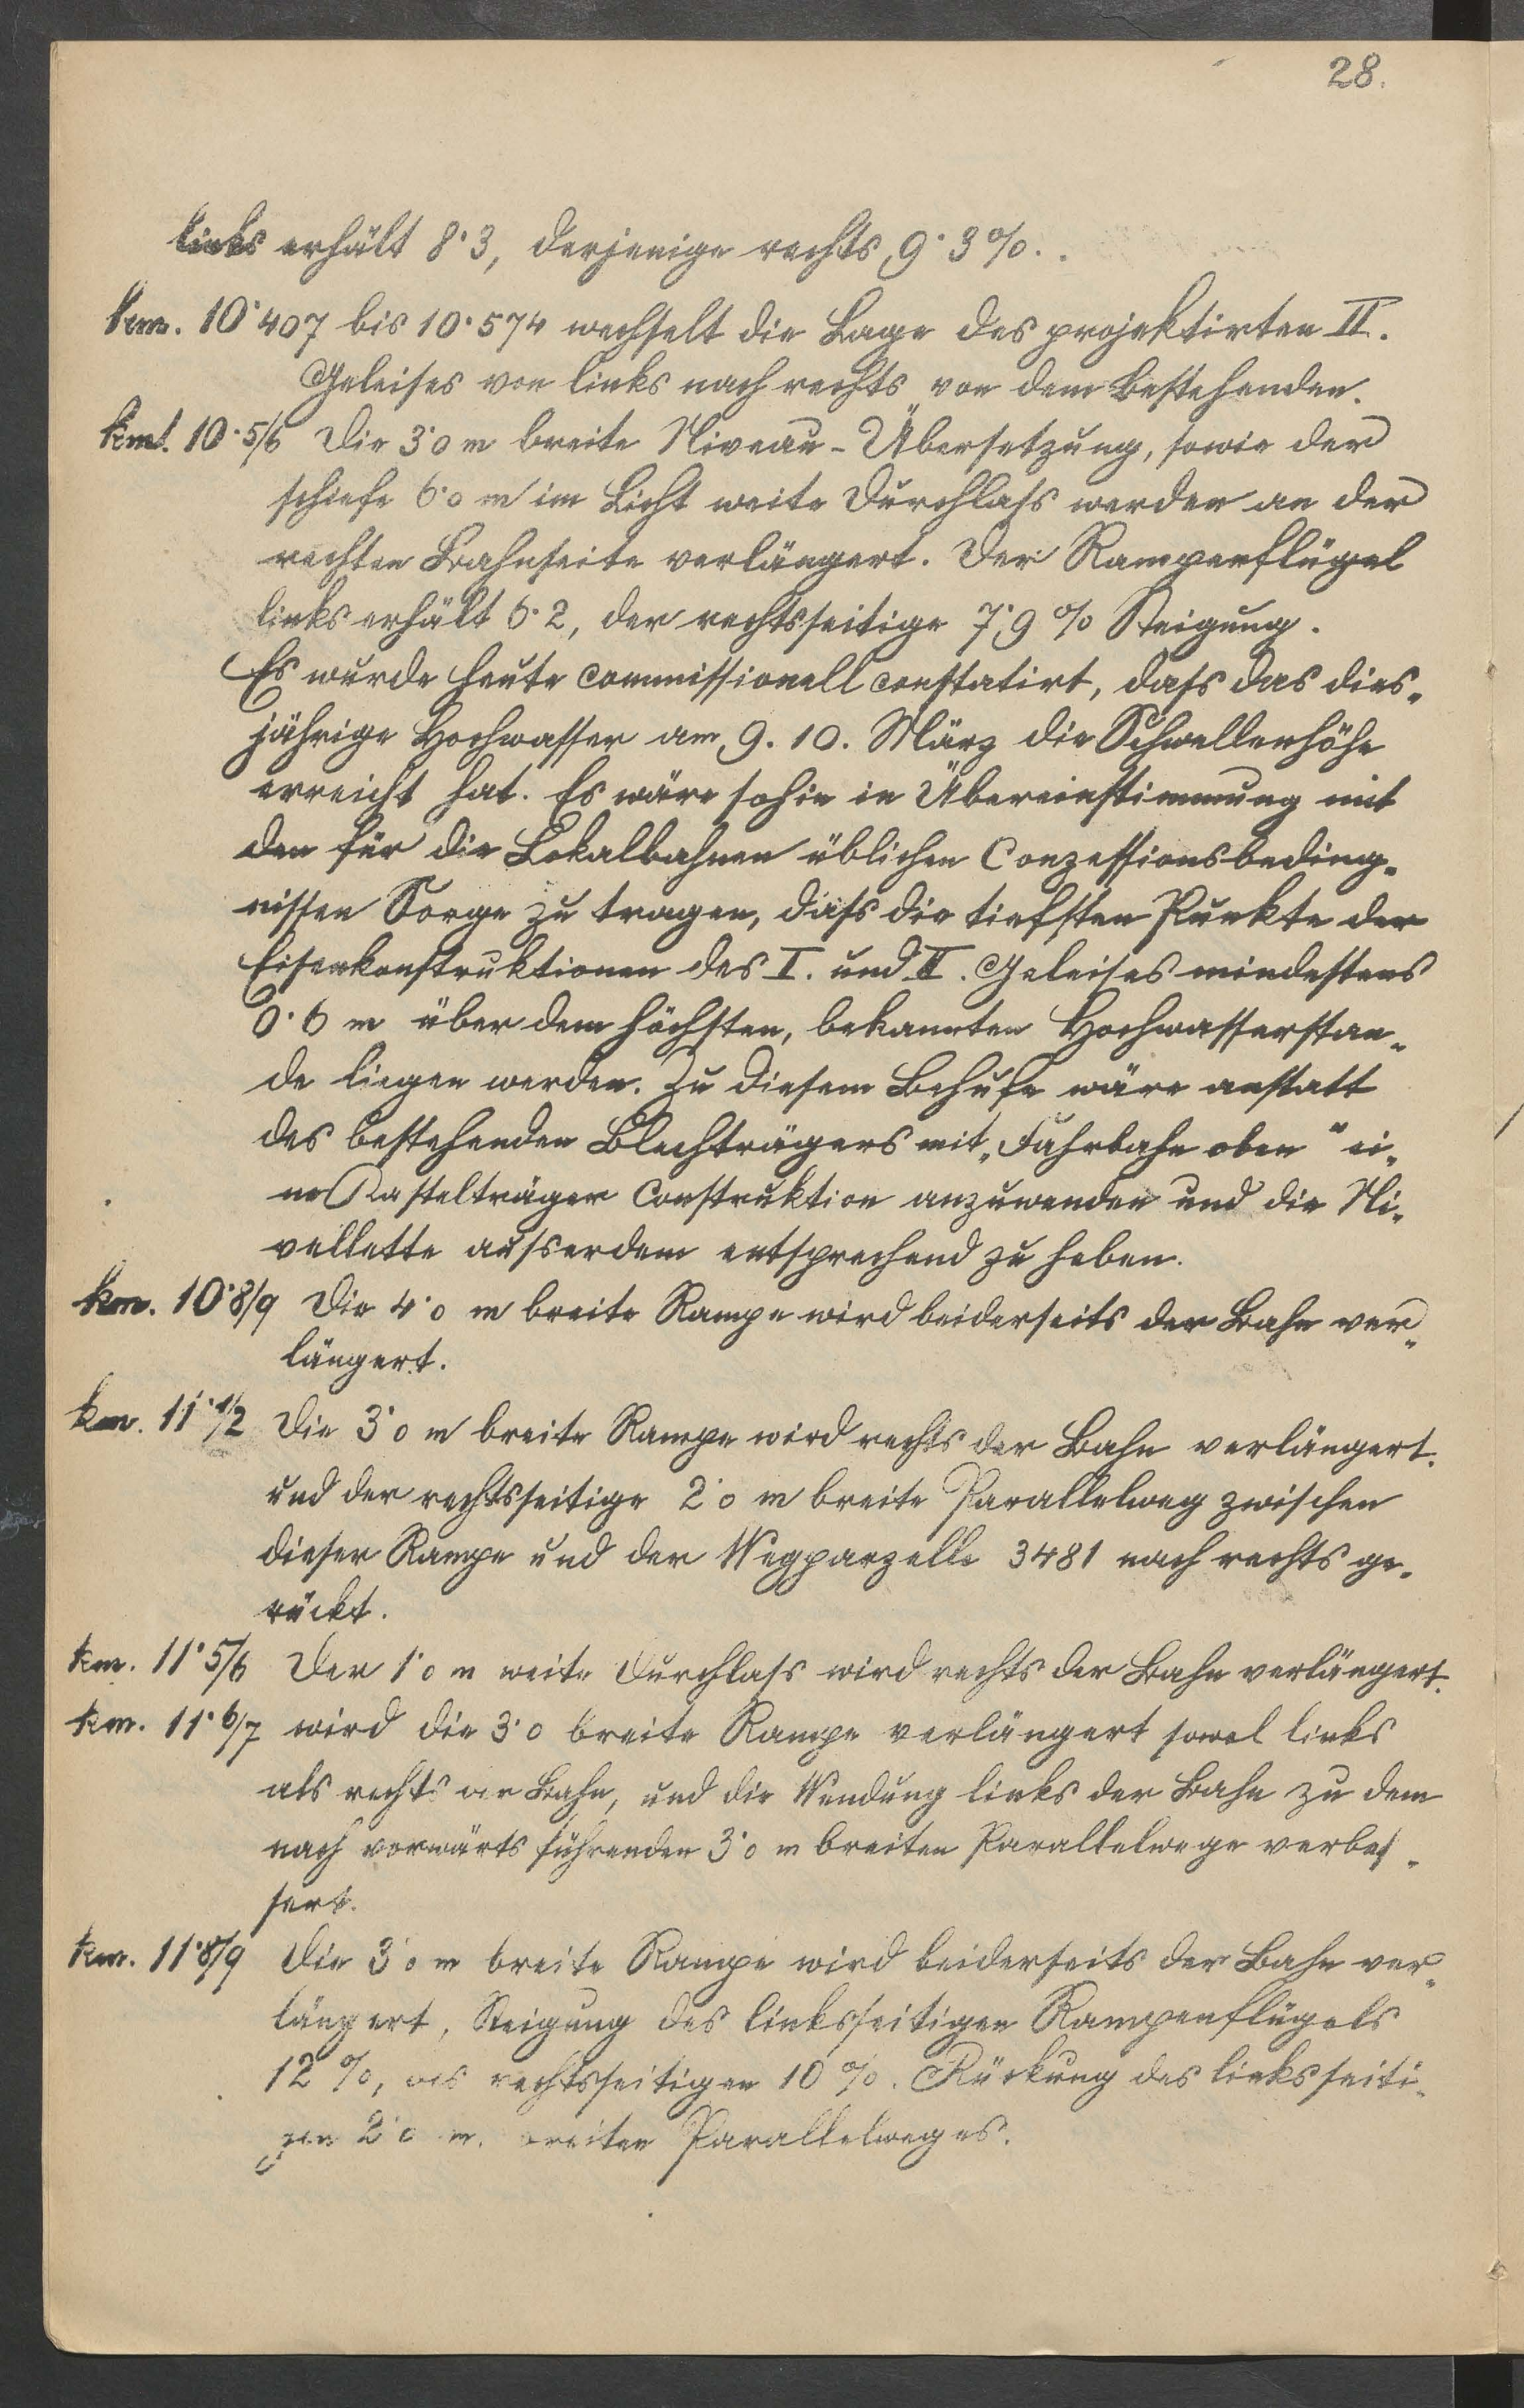 28.
links erhält 8·3, derjenige rechts 9·3%.
km. 10·407 bis 10·574 wechselt die Lage des projektirten II.
Geleises von links nach rechts von dem Bestehenden.
km. 10·5/6 Die 3·0 m breite Niveau-Übersetzung, sowie der
schiefe 6·0 m im Licht weite Durchlass werden an der
rechten Bahnseite verlängert. Der Rampenflügel
links erhält 6·2, der rechtsseitige 7·9% Steigung.
Es wurde heute commissionell constatirt, dass das dies-
jährige Hochwasser am 9. 10. März die Schwellenhöhe
erreicht hat. Es wäre sohin in Übereinstimmung mit
den für die Lokalbahnen üblichen Conzessionsbeding-
nissen Sorge zu tragen, dass die tiefsten Punkte der
Eisenkonstruktionen des I. und II. Geleises mindestens
0·6 m über dem höchsten, bekannten Hochwasserstan-
de liegen werden. Zu diesem Behufe wäre anstatt
des bestehenden Blechträgers mit „Fahrbahn oben" ei-
ne Kastelträger Construktion anzuwenden und die Ni-
vellette ausserdem entsprechend zu heben.
km. 10·8/9 Die 4·0 m breite Rampe wird beiderseits der Bahn ver-
längert.
km. 11·1/2 Die 3·0 m breite Rampe wird rechts der Bahn verlängert.
und der rechtsseitige 2·0 m breite Parallelweg zwischen
dieser Rampe und der Wegparzelle 3481 nach rechts ge-
rückt.
km. 11·5/6 Der 1·0 m weite Durchlass wird rechts der Bahn verlängert.
km. 11·6/7 wird die 3·0 breite Rampe verlängert sowol links
als rechts der Bahn, und die Wendung links der Bahn zu dem
nach vorwärts führenden 3·0 m breiten Parallelwege verbes-
sert.
km. 11·8/9 Die 3·0 m breite Rampe wird beiderseits der Bahn ver-
längert, Steigung des linksseitigen Rampenflügels
12%, des rechtsseitigen 10%. Rückung des linksseiti-
gen 2·0 m. breiten Parallelweges.